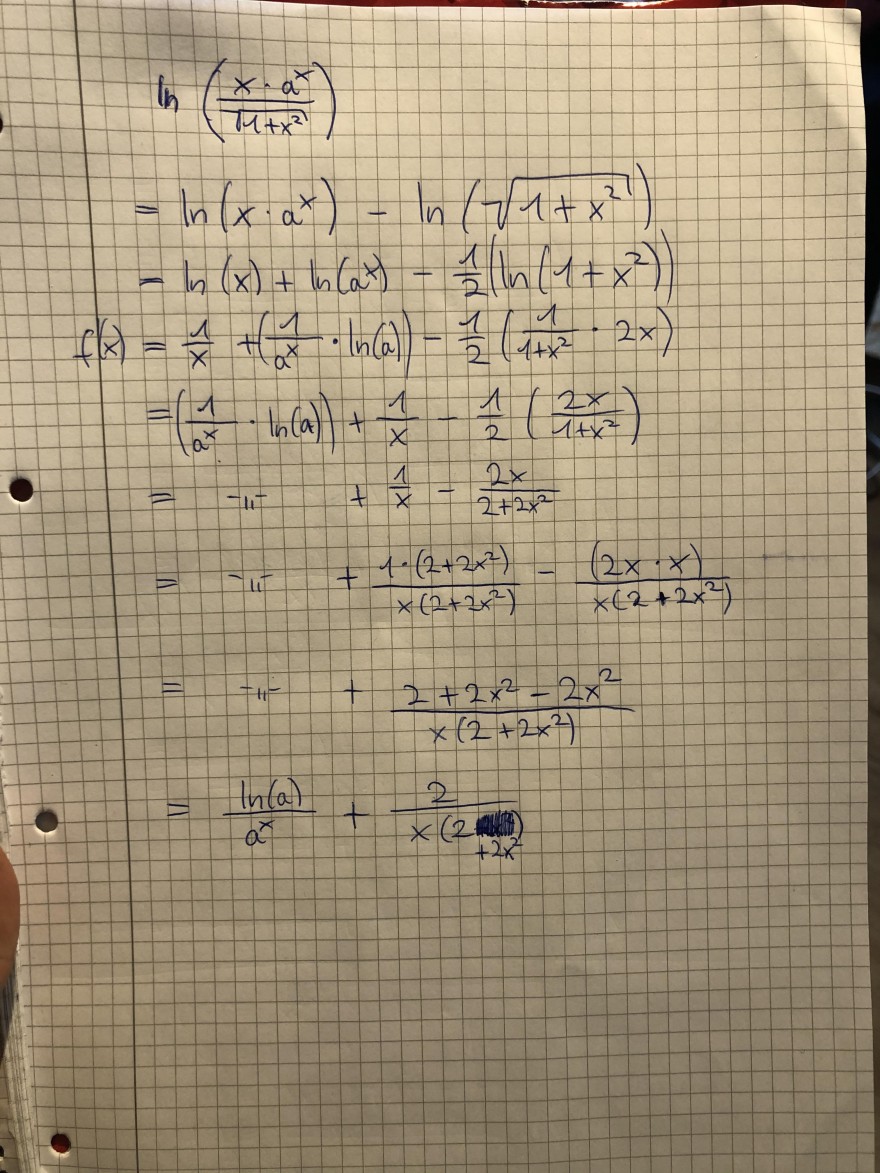 ln (x · aˣ / √1+x²)
= ln (x · aˣ) - ln (√1 + x²)
= ln (x) + ln(aˣ) - 1/2 (ln (1 + x²))
f'(x) = 1/x + (1/aˣ · ln(a)) - 1/2 (1/1+x² · 2x)
= (1/aˣ · ln(a)) + 1/x - 1/2 (2x/1+x²)
= -"- + 1/x - 2x/2+2x²
= -"- + 1·(2+2x²)/x(2+2x²) - (2x · x)/x(2+2x²)
= -"- + 2 + 2x² - 2x²/x(2+2x²)
= ln(a)/aˣ + 2/x(2+2x²)